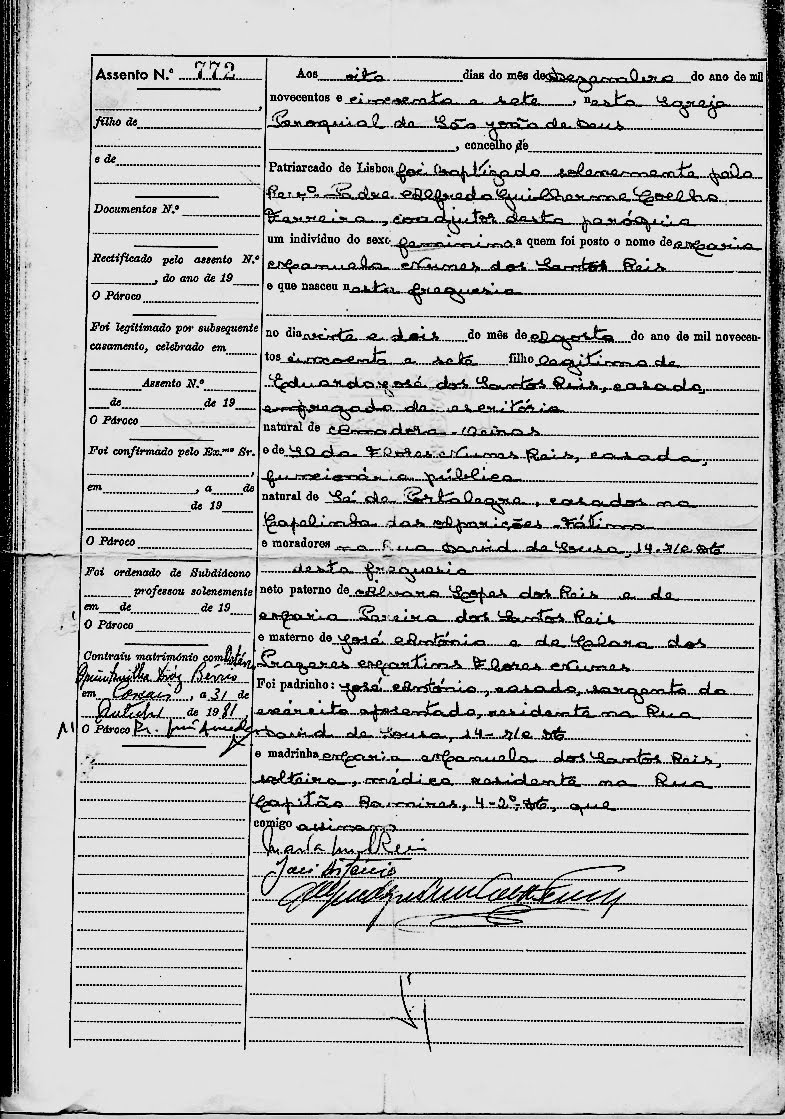 Assento N.º 772
filho de
e de
Documentos N.º
Rectificado pelo assento N.º
, do ano de 19
O Pároco
Foi legitimado por subsequente
casamento, celebrado em
Assento N.º
de de 19
O Pároco
Foi confirmado pelo Ex.mo Sr.
em , a de
de 19
O Pároco
Foi ordenado de Subdiácono
professou solenemente
em de de 19
O Pároco
Contraiu matrimónio com
em , a 31 de
de 1981
O Pároco
Aos oito dias do mês de Dezembro do ano de mil
novecentos e cincoenta e sete, nesta Igreja
Paroquial de São João de Deus
, concelho de
Patriarcado de Lisboa foi baptizado solenemente pelo
Rev.º Padre Alfredo Guilherme Coelho
Ferreira, coadjutor desta paróquia
um indivíduo do sexo feminino a quem foi posto o nome de Maria
Manuela Nunes dos Santos Reis
e que nasceu nesta freguesia
no dia vinte e dois do mês de Agosto do ano de mil novecen-
tos cincoenta e sete filho legitima de
Eduardo José dos Santos Reis, casado,
empregado de escritório
natural de Amadora - Oeiras
e de Flores Nunes Reis, casada,
funcionária pública
natural de Sé de Portalegre, casados na
Capelinha das Aparições - Fátima
e moradores na Rua David de Sousa, 14- r/c dto
desta freguesia
neto paterno de Alvaro Lopes dos Reis e de
Maria Pereira dos Santos Reis
e materno de José António e de Clara dos
Prazeres Martins Flores Nunes
Foi padrinho: José António, casado, sargento do
exército aposentado, residente na Rua
David de Sousa, 14- r/c dto
e madrinha Maria Manuela dos Santos Reis,
solteira, médica residente na Rua
Capitão Ramires, 4-2º. dto, que
comigo assinam
José António